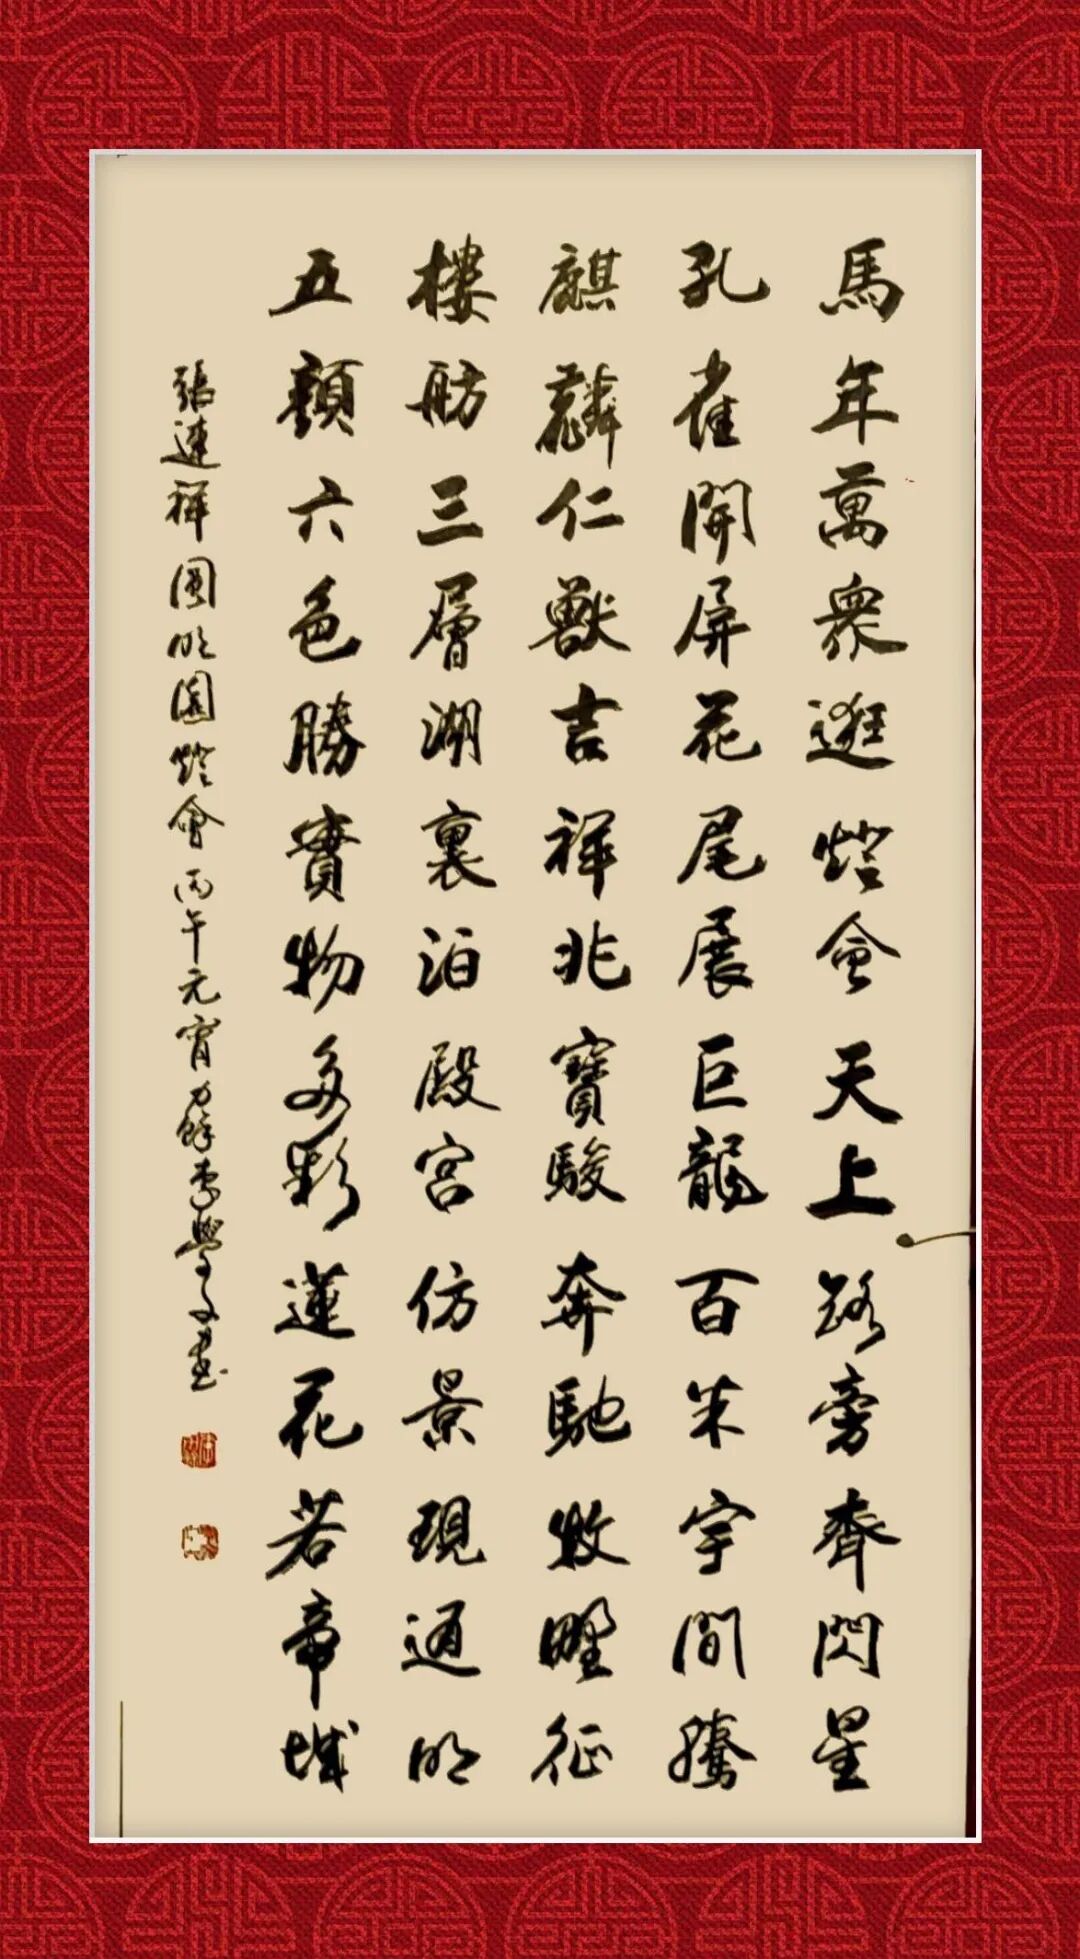 馬年萬衆逛燈會天上路旁齊閃星
孔雀開屏花尾展巨龍百米宇間騰
麒麟仁獸吉祥兆寶駿奔馳牧野征
樓舫三層湖裏泊殿宮仿景現通明
五顏六色勝實物多彩蓮花若帝城
張連祥圓明園燈會丙午元宵力餘李學文書